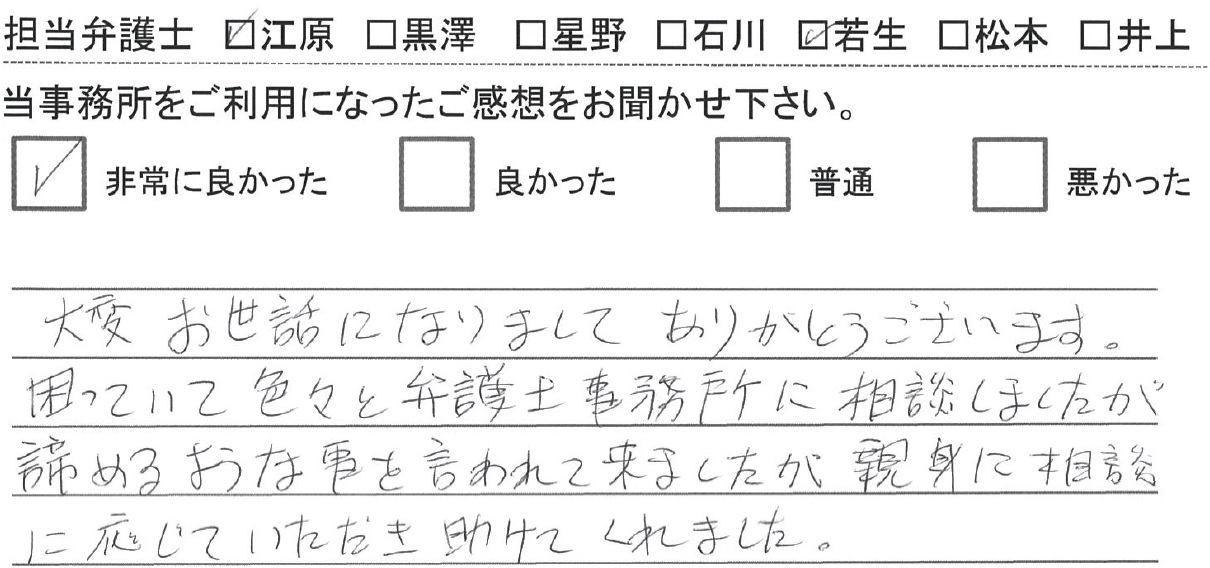 担当弁護士 ☑江原 □黒澤 □星野 □石川 ☑若生 □松本 □井上
当事務所をご利用になったご感想をお聞かせ下さい。
☑ 非常に良かった □ 良かった □ 普通 □ 悪かった
大変 お世話になりまして ありがとうございます。
困っていて 色々と 弁護士事務所に 相談しましたが
諦めるような事を言われて来ましたが 親身に相談
に応じていただき 助けてくれました。